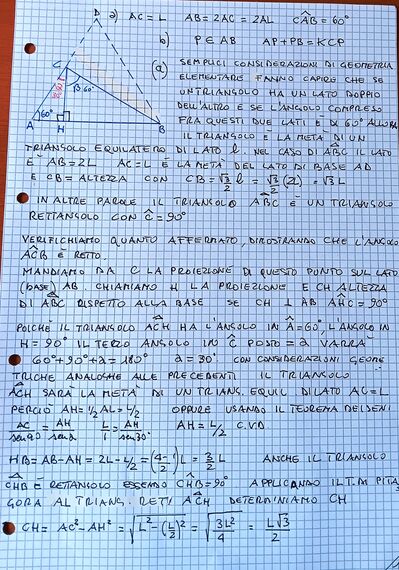 D
a) AC = L AB = 2AC = 2AL CÂB = 60°
b) P ∈ AB AP + PB = KCP
(a) SEMPLICI CONSIDERAZIONI DI GEOMETRIA
ELEMENTARE FANNO CAPIRE CHE SE
UN TRIANGOLO HA UN LATO DOPPIO
DELL'ALTRO E SE L'ANGOLO COMPRESO
FRA QUESTI DUE LATI È DI 60° ALLORA
C
60°
A 60° H B
IL TRIANGOLO È LA METÀ DI UN
TRIANGOLO EQUILATERO DI LATO l. NEL CASO DI ABC IL LATO
È AB = 2L AC = L È LA METÀ DEL LATO DI BASE AD
E CB = ALTEZZA CON CB = √3/2 l = √3/2 (2L) = √3 L
IN ALTRE PAROLE IL TRIANGOLO ABC È UN TRIANGOLO
RETTANGOLO CON Ĉ = 90°
VERIFICHIAMO QUANTO AFFERMATO, DIMOSTRANDO CHE L'ANGOLO
AĈB È RETTO.
MANDIAMO DA C LA PROIEZIONE DI QUESTO PUNTO SUL LATO
(base) AB. CHIAMIAMO H LA PROIEZIONE E CH ALTEZZA
DI ABC RISPETTO ALLA BASE SE CH ⊥ AB AĤC = 90°
POICHÈ IL TRIANGOLO ACH HA L'ANGOLO IN Â = 60° L'ANGOLO IN
H = 90° IL TERZO ANGOLO IN Ĉ POSTO = α VARRÀ
60° + 90° + α = 180° α = 30°. CON CONSIDERAZIONI GEOME
TRICHE ANALOGHE ALLE PRECEDENTI IL TRIANGOLO
ACH SARÀ LA METÀ DI UN TRIANG. EQUIL DI LATO AC = L
PERCIÒ AH = 1/2 AL = L/2 OPPURE USANDO IL TEOREMA DEI SENI
AC/sen90 = AH/senα L/1 = AH/sen30° AH = L/2 C.V.D.
HB = AB - AH = 2L - L/2 = (4-1/2)L = 3/2 L ANCHE IL TRIANGOLO
CHB È RETTANGOLO ESSENDO CĤB = 90° APPLICANDO IL T. DI PITA
GORA AL TRIANG. RETT ACH DETERMINIAMO CH
CH = AC² - AH² = √L² - (L/2)² = √3L²/4 = L√3/2